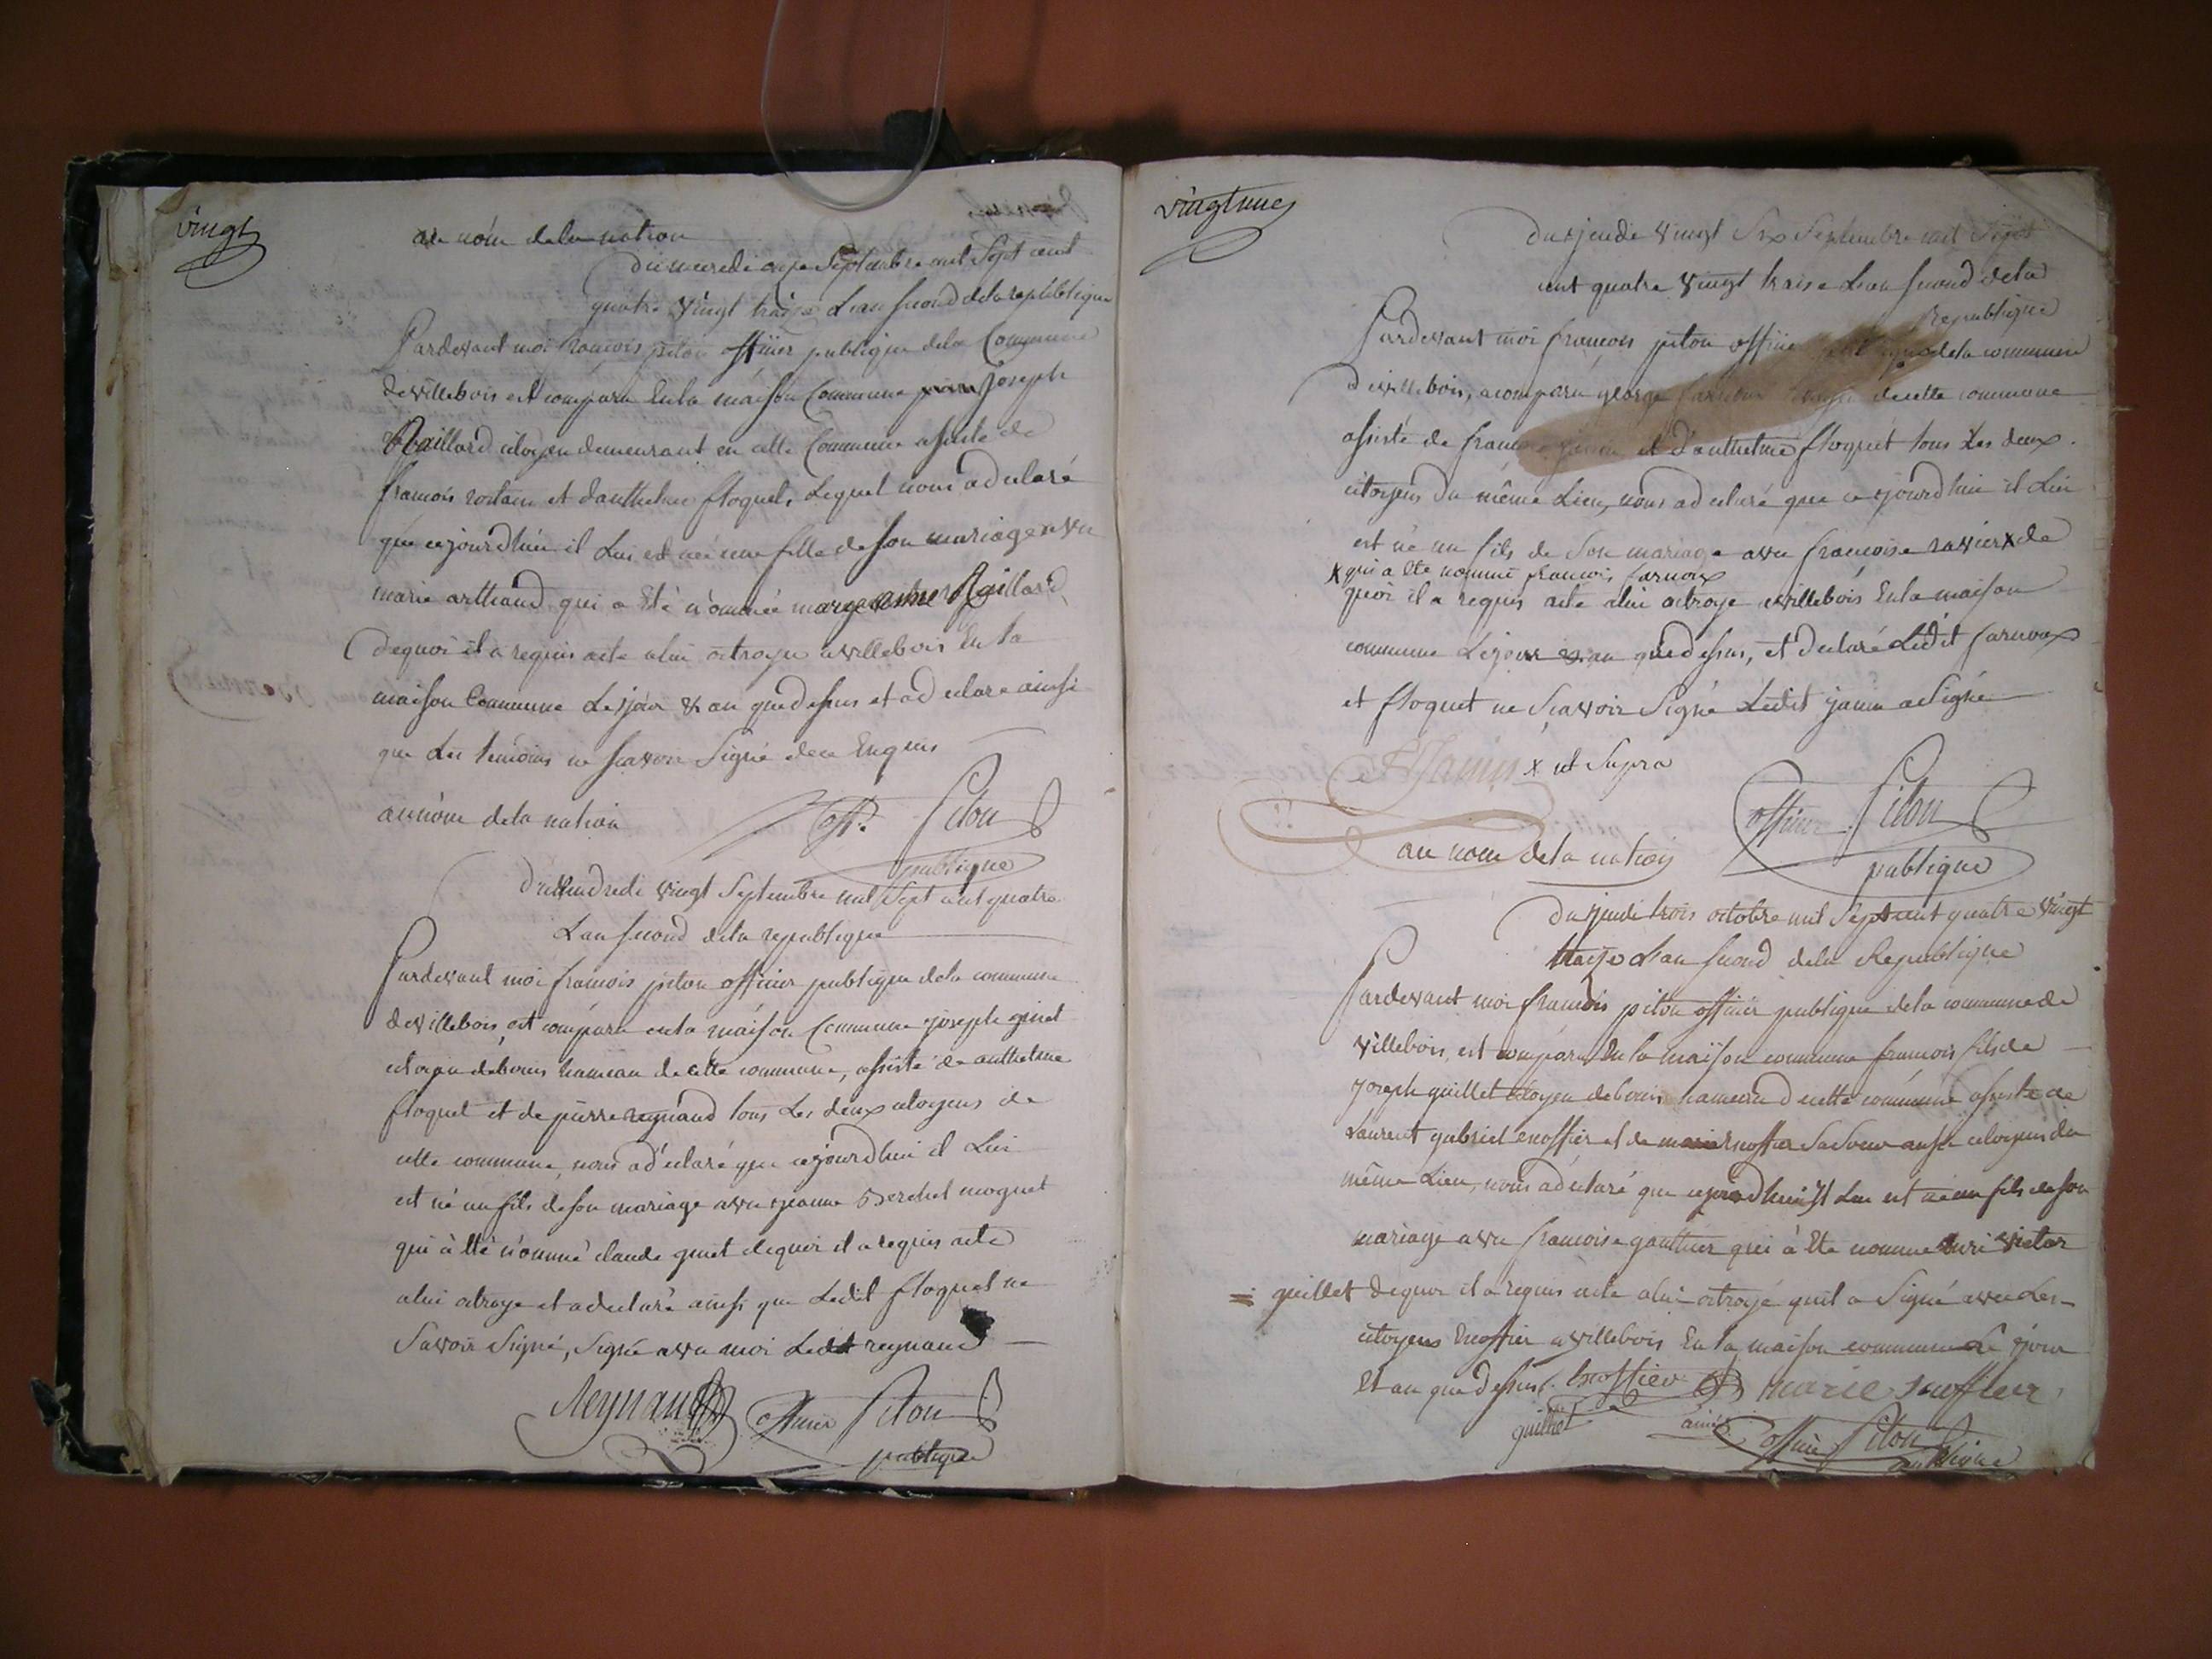 vingt
au nom dela nation
du mercredi onze Septembre mil Sept cent
quatre vingt traize L'an second dela republique
Pardevant moi francois piton officier publique dela Commune
de villebois est comparu En la maison Commune joseph
Maillard citoyen demeurant en cette Commune assisté de
francois rostain et danthelme floquet, Lequel nous a declaré
que cejourdhui il Lui est née une fille de son mariage avec
marie arthaud qui a Eté nommée Maillard
Dequoi il a requis acte alui octroye a villebois En la
maison Commune Le jour & an quedessus et a declaré ainsi
que Les temoins ne scavoir Signé dece Enquis
au nom dela nation off. Piton
publique
du vendredi vingt Septembre mil Sept cent quatre
L'an second dela republique
Pardevant moi francois piton officier publique dela commune
de villebois, est comparu en la maison Commune joseph ginet
citoyen de bouis hameau de cette commune, assisté de anthelme
floquet et de pierre reynaud tous Les deux citoyens de
cette commune, nous a declaré que cejourdhui il Lui
est né un fils de son mariage avec jeanne Berchet moquet
qui à Eté nommé claude ginet dequoi il a requis acte
alui octroye et a declaré ainsi que Ledit floquet ne
Savoir Signé, Signé avec moi Ledit reynaud
Reynaud officier Piton
publique
vingt une
Du jeudi vingt Six Septembre mil Sept
cent quatre vingt traise L'an second dela
Republique
Pardevant moi francois piton officier publique dela commune
de villebois, a comparu george de cette commune
assisté de francois janin et d'anthelme floquet tous Les deux
citoyens du même Lieu, nous a declaré que cejourdhui il Lui
est né un fils de Son mariage avec francoise ravier x de
x qui a Eté nommé francois Carnoux
quoi il a requis acte alui octroye a villebois En la maison
commune Le jour & an quedessus, et declaré Ledit Carnoux
et floquet ne Scavoir Signé Ledit janin a Signé
Janin x ut Supra
officier Piton
au nom dela nation
publique
Du jeudi trois octobre mil Sept cent quatre vingt
traize L'an second dela Republique
Pardevant moi francois piton officier publique dela commune de
villebois, est comparu En la maison commune francois fils de
joseph guillet citoyen de bouis hameau de cette commune assisté de
Laurent gabriel Enoffier et de marie Enoffier Sa Soeur aussi citoyens du
même Lieu, nous a declaré que cejourdhui Il Lui est né un fils de son
mariage avec francoise gauthier qui à Eté nommé victor
= guillet dequoi il a requis acte alui octroyé quil a Signé avec Les
citoyens Enoffier a villebois En la maison commune Le jour
Et an que dessus. Enoffier marie
guillet ainé officier Piton
publique